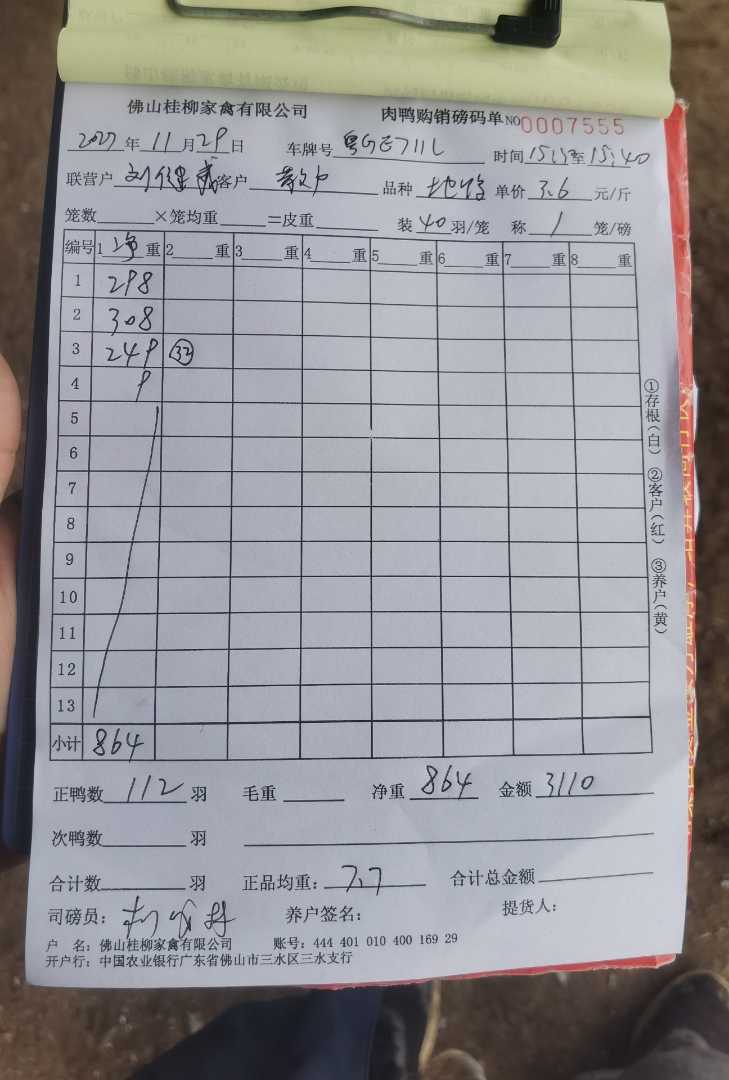 佛山桂柳家禽有限公司 肉鸭购销磅码单 NO 0007555
年 11 月 29 日 车牌号 时间 15:13 至 15:40
联营户 刘 客户 散户 品种 单价 3.6 元/斤
笼数 ×笼均重 =皮重 装 40 羽/笼 称 1 笼/磅
编号 1 净 重 2 重 3 重 4 重 5 重 6 重 7 重 8 重
1 298
2 308
3 249 32
4 9
5
6
7
8
9
10
11
12
13
小计 864
①存根(白) ②客户(红) ③养户(黄)
正鸭数 112 羽 毛重 净重 864 金额 3110
次鸭数 羽
合计数 羽 正品均重: 7.7 合计总金额
司磅员: 养户签名: 提货人:
户 名: 佛山桂柳家禽有限公司 账号: 444 401 010 400 169 29
开户行: 中国农业银行广东省佛山市三水区三水支行